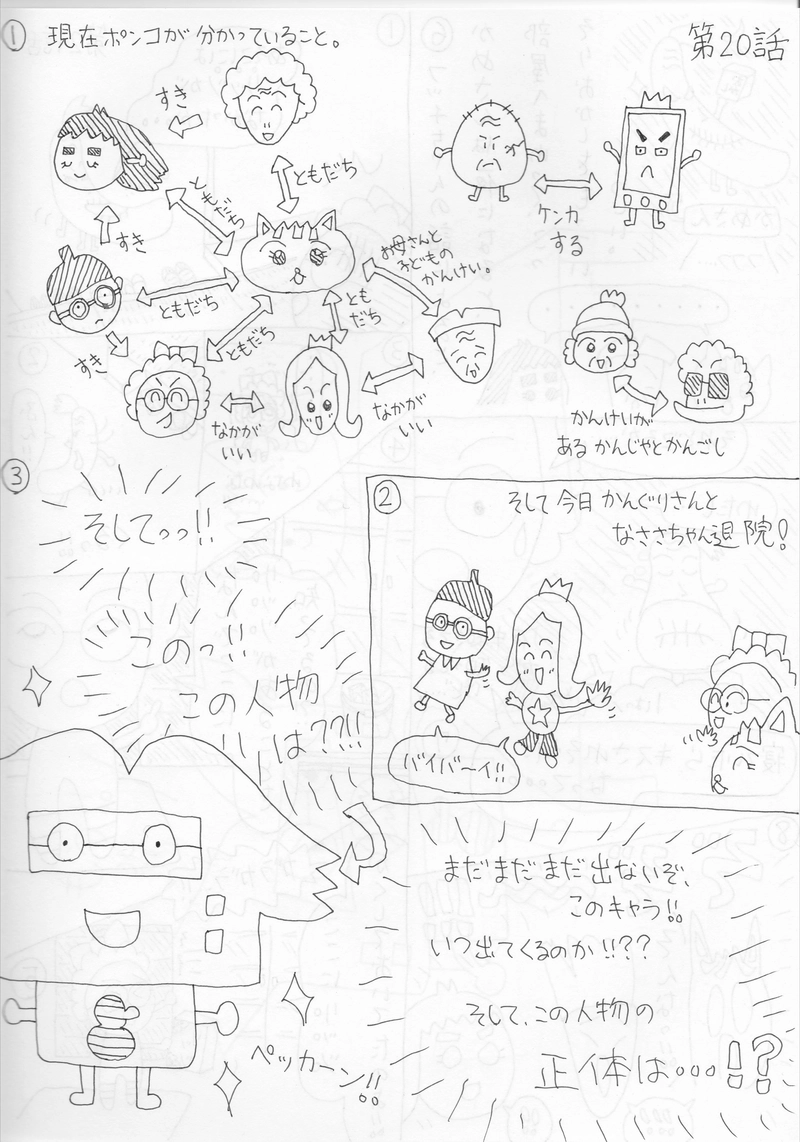 第20話
① 現在ポンコが分かっていること。
すき
ともだち
ともだち
すき
ともだち
すき
ともだち
とも
だち
お母さんと
子どもの
かんけい。
なかが
いい
なかが
いい
ケンカ
する
かんけいが
あるかんじゃとかんごし
②
そして今日かんぐりさんと
なささちゃん退院!
バイバーイ!!
③
そしてっっ!!
このっ!!
この人物
は??!!
ペッカーン!!
まだまだまだ出ないぞ、
このキャラ!!
いつ出てくるのか!!??
そして、この人物の
正体は…!?